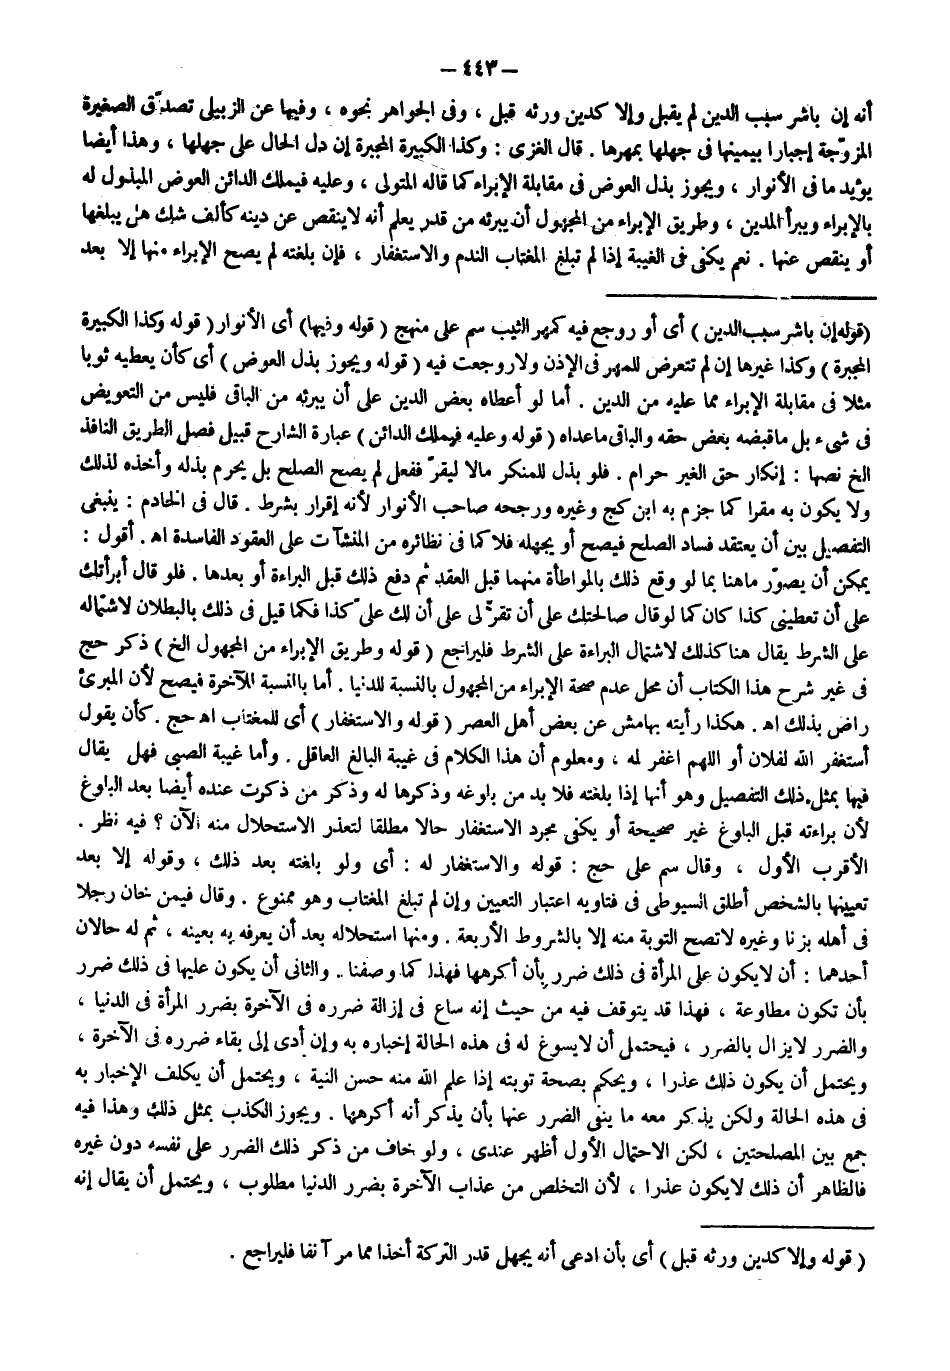 — ٤٤٣ —
أنه إن باشر سبب الدين لم يقبل وإلا كدين ورثه قبل ، وفى الجواهر نحوه ، وفيها عن الزبيلى تصدّق الصغيرة
المزوّجة إجبارا بيمينها فى جهلها بمهرها . قال الغزى : وكذا الكبيرة المجبرة إن دل الحال على جهلها ، وهذا أيضا
يؤيد ما فى الأنوار ، ويجوز بذل العوض فى مقابلة الإبراء كما قاله المتولى ، وعليه فيملك الدائن العوض المبذول له
بالإبراء ويبرأ المدين ، وطريق الإبراء من المجهول أن يبرئه من قدر يعلم أنه لاينقص عن دينه كألف شك هل يبلغها
أو ينقص عنها . نعم يكفى فى الغيبة إذا لم تبلغ المغتاب الندم والاستغفار ، فإن بلغته لم يصح الإبراء منها إلا بعد
(قوله إن باشر سبب الدين ) أى أو روجع فيه كمهر الثيب سم على منهج ( قوله وفيها) أى الأنوار ( قوله وكذا الكبيرة
المجبرة ) وكذا غيرها إن لم تتعرض للمهر فى الإذن ولا روجعت فيه ( قوله ويجوز بذل العوض ) أى كأن يعطيه ثوبا
مثلا فى مقابلة الإبراء مما عليه من الدين . أما لو أعطاه بعض الدين على أن يبرئه من الباقى فليس من التعويض
فى شىء بل ما قبضه بعض حقه والباقى ماعداه ( قوله وعليه فيملك الدائن ) عبارة الشارح قبيل فصل الطريق النافذ
الخ نصها : إنكار حق الغير حرام . فلو بذل للمنكر مالا ليقرّ ففعل لم يصح الصلح بل يحرم بذله وأخذه لذلك
ولا يكون به مقرا كما جزم به ابن كج وغيره ورجحه صاحب الأنوار لأنه إقرار بشرط . قال فى الخادم : ينبغى
التفصيل بين أن يعتقد فساد الصلح فيصح أو يجهله فلا كما فى نظائره من المنشآت على العقود الفاسدة اه . أقول :
يمكن أن يصوّر ماهنا بما لو وقع ذلك بالمواطأة منهما قبل العقد ثم دفع ذلك قبل البراءة أو بعدها . فلو قال أبرأتك
على أن تعطينى كذا كان كما لو قال صالحتك على أن تقرّ لى على أن لك علىّ كذا فكما قيل فى ذلك بالبطلان لاشتماله
على الشرط يقال هنا كذلك لاشتمال البراءة على الشرط فليراجع ( قوله وطريق الإبراء من المجهول الخ ) ذكر حج
فى غير شرح هذا الكتاب أن محل عدم صحة الإبراء من المجهول بالنسبة للدنيا . أما بالنسبة للآخرة فيصح لأن المبرئ
راض بذلك اه . هكذا رأيته بهامش عن بعض أهل العصر ( قوله والاستغفار ) أى للمغتاب اه حج . كأن يقول
أستغفر الله لفلان أو اللهم اغفر له ، ومعلوم أن هذا الكلام فى غيبة البالغ العاقل . وأما غيبة الصبى فهل يقال
فيها بمثل ذلك التفصيل وهو أنها إذا بلغته فلا بد من بلوغه وذكرها له وذكر من ذكرت عنده أيضا بعد البلوغ
لأن براءته قبل البلوغ غير صحيحة أو يكفى مجرد الاستغفار حالا مطلقا لتعذر الاستحلال منه الآن ؟ فيه نظر .
الأقرب الأول ، وقال سم على حج : قوله والاستغفار له : أى ولو بلغته بعد ذلك ، وقوله إلا بعد
تعيينها بالشخص أطلق السيوطى فى فتاويه اعتبار التعيين وإن لم تبلغ المغتاب وهو ممنوع . وقال فيمن خان رجلا
فى أهله بزنا وغيره لاتصح التوبة منه إلا بالشروط الأربعة . ومنها استحلاله بعد أن يعرفه به بعينه ، ثم له حالان
أحدهما : أن لايكون على المرأة فى ذلك ضرر بأن أكرهها فهذا كما وصفنا . والثانى أن يكون عليها فى ذلك ضرر
بأن تكون مطاوعة ، فهذا قد يتوقف فيه من حيث إنه ساع فى إزالة ضرره فى الآخرة بضرر المرأة فى الدنيا ،
والضرر لايزال بالضرر ، فيحتمل أن لايسوغ له فى هذه الحالة إخباره به وإن أدى إلى بقاء ضرره فى الآخرة ،
ويحتمل أن يكون ذلك عذرا ، ويحكم بصحة توبته إذا علم الله منه حسن النية ، ويحتمل أن يكلف الإخبار به
فى هذه الحالة ولكن يذكر معه ما ينفى الضرر عنها بأن يذكر أنه أكرهها . ويجوز الكذب بمثل ذلك وهذا فيه
جمع بين المصلحتين ، لكن الاحتمال الأول أظهر عندى ، ولو خاف من ذكر ذلك الضرر على نفسه دون غيره
فالظاهر أن ذلك لايكون عذرا ، لأن التخلص من عذاب الآخرة بضرر الدنيا مطلوب ، ويحتمل أن يقال إنه
( قوله وإلا كدين ورثه قبل ) أى بأن ادعى أنه يجهل قدر التركة أخذا مما مر آنفا فليراجع .